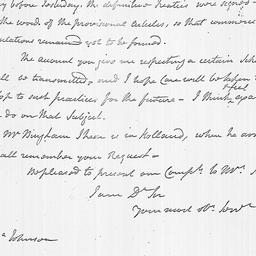 y before Saturday. the definitive Treaties were signed
the words of the provisional Articles, so that commerce
ulations remained yet to be formed.
The account you give me respecting a certain Sch
all be transmitted, and I hope Care will be taken
op to such practices for the future – I think
feel
do on that Subject.
Mr Bingham I hear is in Holland, when he
all remember your Request –
Be pleased to present our Complts. to Mrs.
I am Dr Sir
Your most Ob. Serv.
Johnson